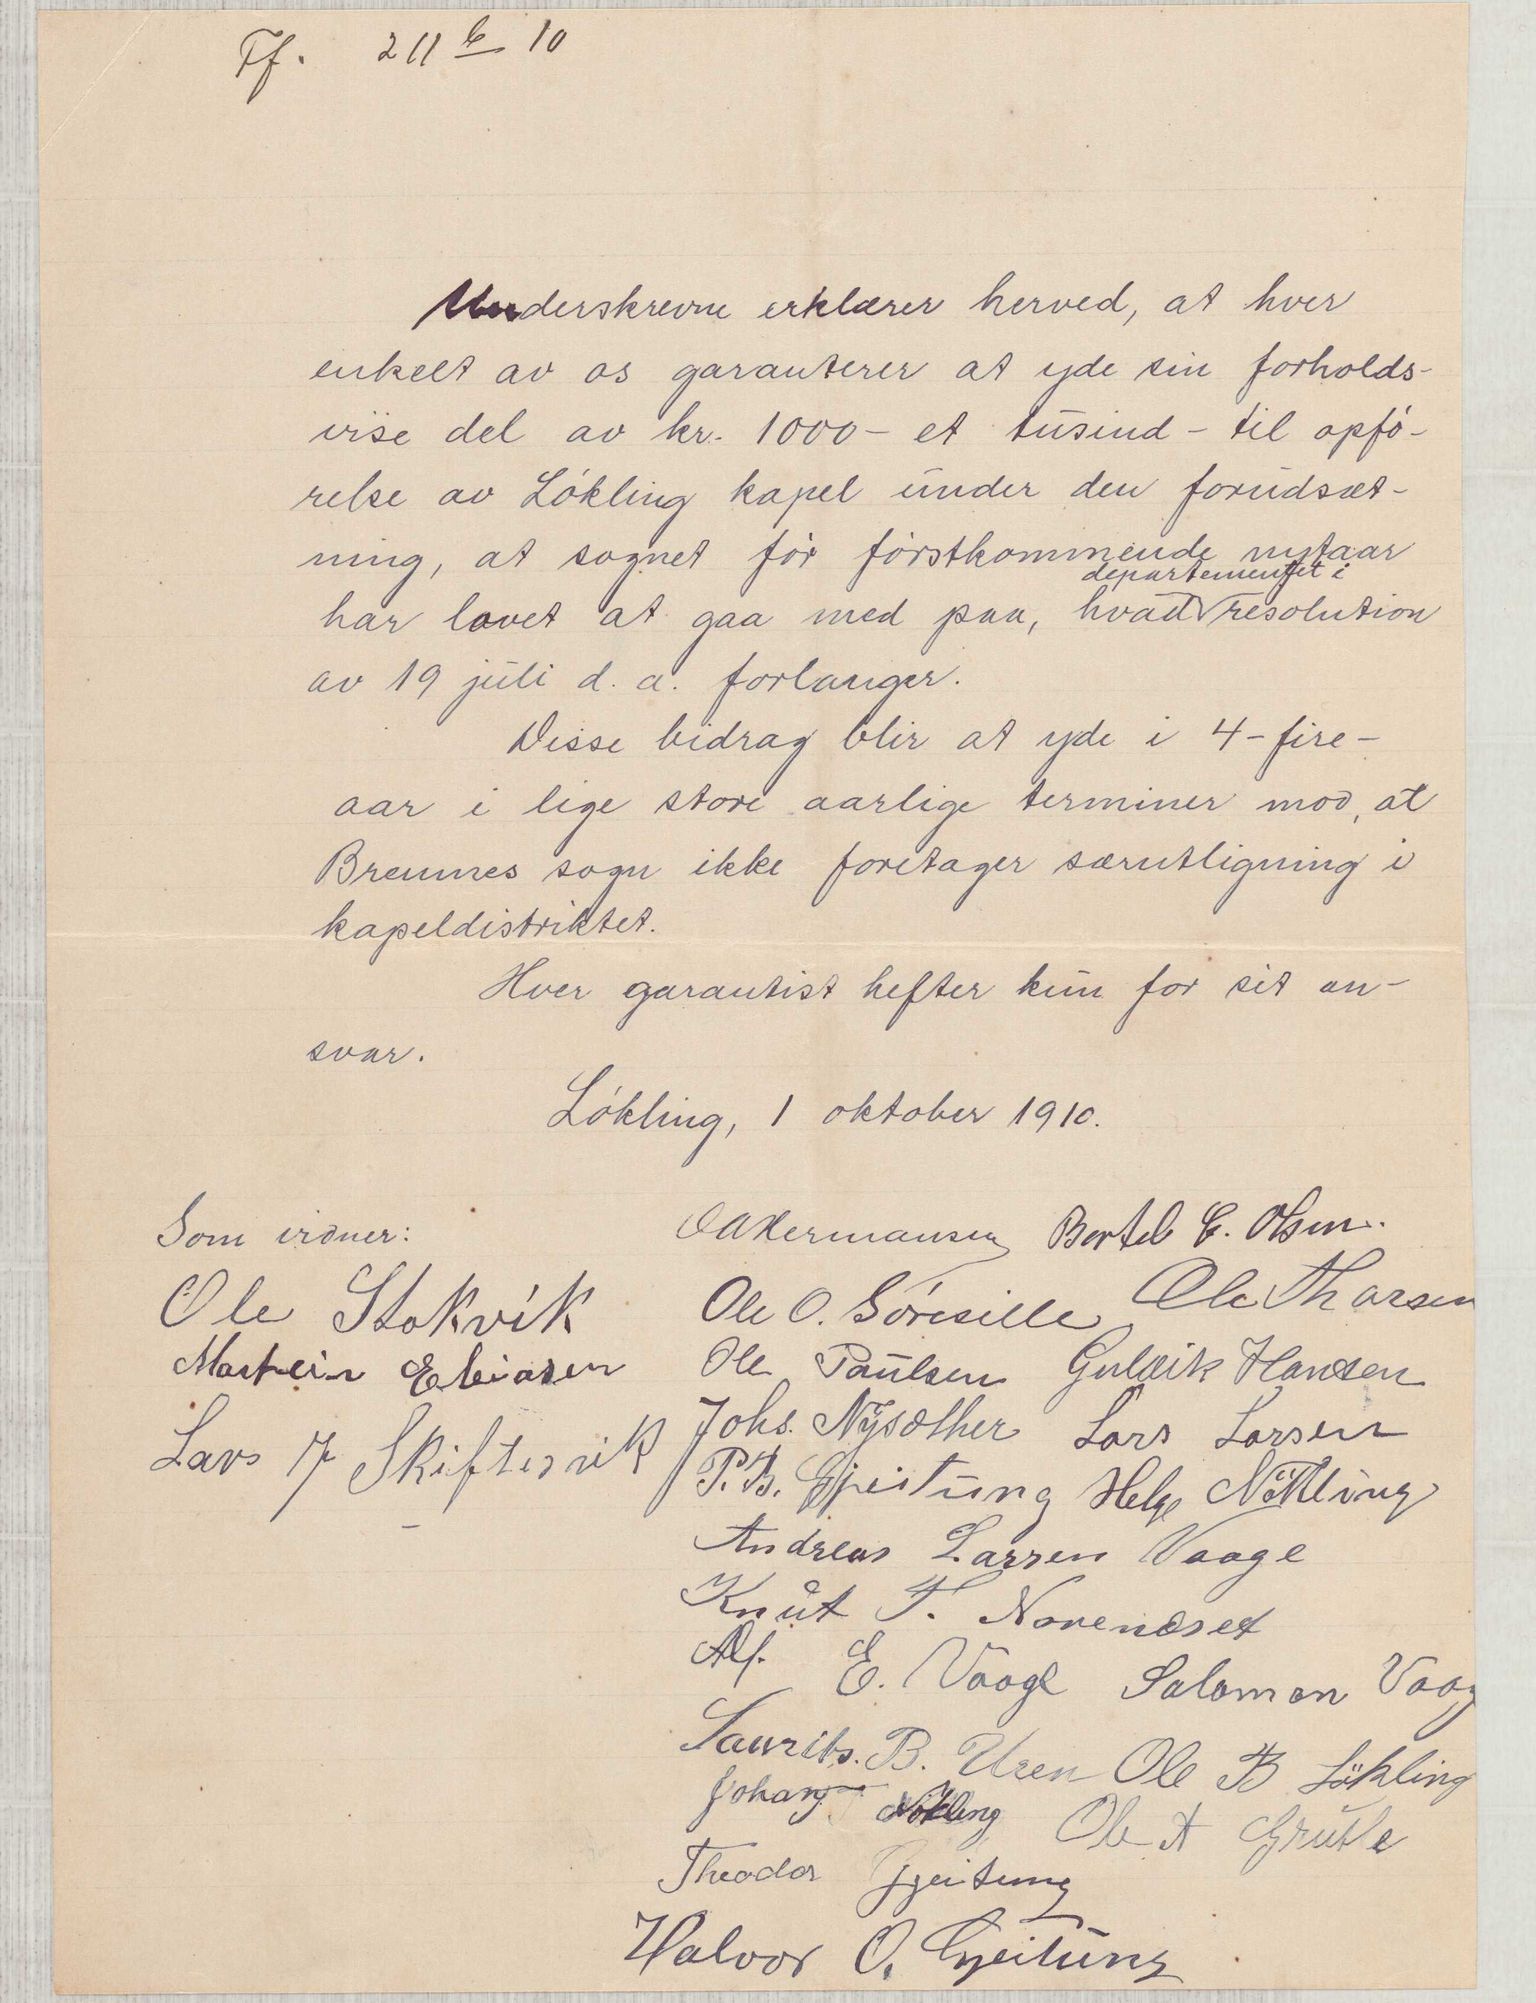 Ff. 211 b 10
Underskrevne erklærer herved, at hver
enkelt av os garanterer at yde sin forholds-
vise del av kr. 1000 - et tusind - til opfø-
relse av Løkling kapel under den forudsæt-
ning, at sognet før førstkommende nytaar
departementet i
har lovet at gaa med paa, hvad resolution
av 19 juli d. a. forlanger.
Disse bidrag blir at yde i 4 - fire -
aar i lige store aarlige terminer mod, at
Bremnes sogn ikke foretager særutligning i
kapeldistriktet.
Hver garantist hefter kun for sit an-
svar.
Løkling, 1 oktober 1910.
Som vidner:
Ole Stokvik
Martein Eliasen
Lars J Skiftesvik
Bertel E. Olsen.
Ole O. Ole Thorsen
Ole Paulsen Guldik Hansen
Johs. Nysæther Lars Larsen
P. B. Gjeitung Helge Nøkling
Andreas Larsen Vaage
Knut T. Hovendset
Alf. E. Vaage Salamon Vaag
Laurits. B. Uren Ole B Løkling
Johan Nökling Ole A Grutle
Theodor Gjeitung
Halvor O. Gjeitung